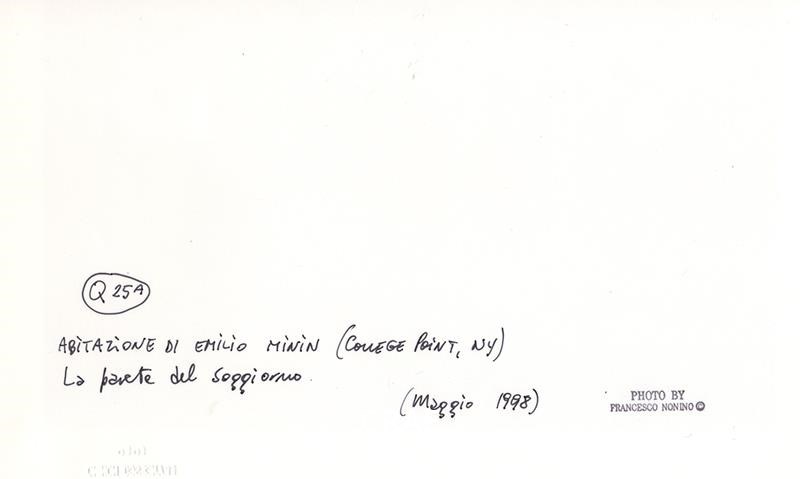 Q 25A
ABITAZIONE DI EMILIO MININ (COLLEGE POINT, NY)
La parete del soggiorno.
(Maggio 1998)
PHOTO BY
FRANCESCO NONINO ©